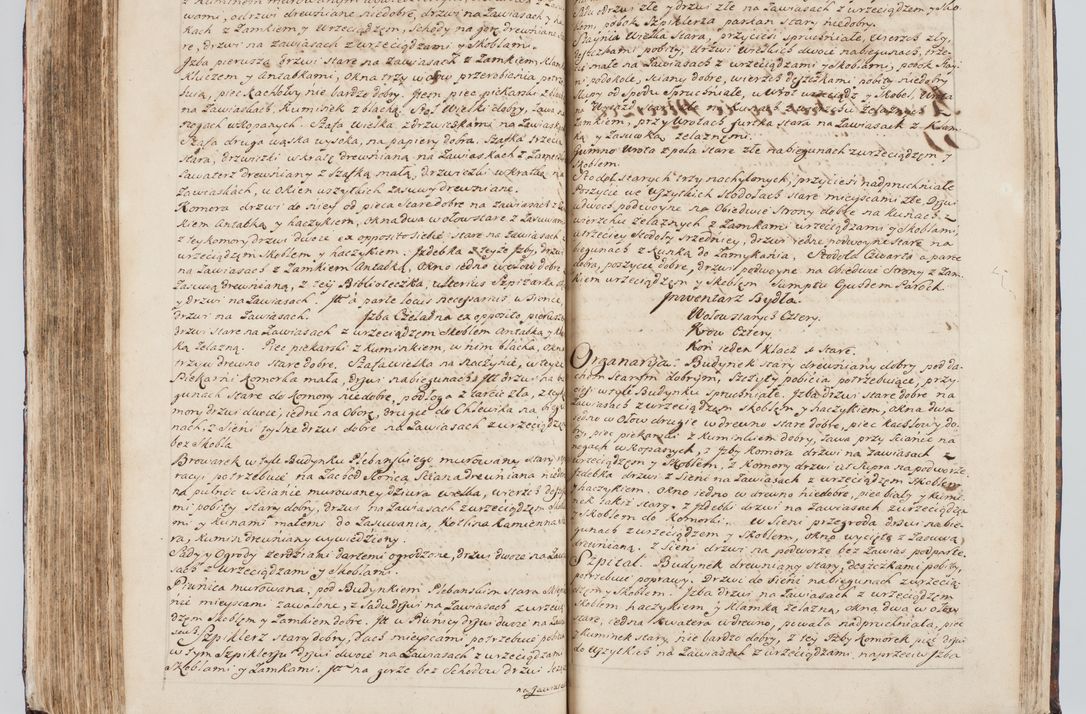 wami, odrzwi drewniane niedobre, drzwi na Zawiasach y
kach z Zamkiem y Wrzeciądzem, Schody na gorę drewniane
re, drzwi na zawiasach z wrzeciądzami y Skoblami.
Jzba pierwsza drzwi stare na Zawiasach z Zamkiem
Kluczem y Antabkami, Okna trzy w ołow przerobienia
piec kachlowy nie bardzo dobry. Item piec piekarski z
na Zawiasach. Kuminek z blachą, Stoł Wielki dobry, Ława
nogach wkopanych. Szafa wielka, z drzwiczkami na Zawiaskach
Szafa druga wąska wysoka, na papiery dobra, Szafka trzecia
Stara, drzwiczki w kratę drewniane na Zawiaskach z Zamecz
drewniany z Szafką małą, drzwiczki w kratkę na
Zawiaskach, w Okien wszytkich zasuwy drewniane.
Komora drzwi do niey od pieca Stare dobre na zawiasach z
kiem Antabką y haczykiem, Okna dwa w ołow stare z Zasuwami
z tey komory drzwi dwoie ex opposito siebie Stare na Zawiasach z
wrzeciądzem Skoblem y haczykiem. Jzdebka z teyże Jzby, drzwi
na Zawiasach z Zamkiem Antabką, Okno iedno w ołow dobre
Zasuwą drewnianą, z tey Biblioteczka, ulterius Spizarka
y drzwi na Zawiasach. Itt a parte locus necessarius w Sionce,
drzwi na Zawiasach. Jzba Czeladna ex opposito pierwszey
drzwi Stare na Zawiasach z wrzeciądzem Skoblem Antabką y
ką Zelazną. Piec piekarski z Kuminkiem, w nim blacha, okna
przy w drewno Stare dobre. Szafa wielka na Naczynie, w teyże
Piekarni Komorka mała, drzwi na biegunach Itt drzwi na
gunach Stare do Komory niedobre, podłoga z tarcic zła, z teyże
mory drzwi dwoie, iedne na Oborę, drugie do Chlewika na bieg
nach; z Sieni tylne drzwi dobre na Zawiasach z wrzeciądzem
bez Skobla.
Browarek w tyle Budynku Plebańskiego murowany stary
racyi potrzebuie na Zachod Słońca, Sciana drewniana
na pułnoc w Scianie murowaney dziura wielka, wierzch
mi pobity stary dobry, drzwi na Zawiasach z wrzeciądzem
mi y kunami małemi do Zasuwania, Kotlina Kamienna
ra, Kumin drewniany wywiedziony.
Sady y Ogrody zerdziami dartemi ogrodzone, drzwi dwoie na Zawia
sach z wrzeciądzami y Skoblami.
Piwnica murowana, pod Budynkiem Plebańskim Stara
mieyscami zawalone, z Sadu drzwi na Zawiasach z wrzecią
dzem Skoblem y Zamkiem dobre. Itt w Piwnicy drzwi dwoie na
Szpiklerz stary dobry, dach mieyscami potrzebuie
w tym Szpiklerzu drzwi dwoie na Zawiasach z wrzeciądzami
Skoblami y Zamkami. Itt na gorze bez Schodow drzwi
na Zawiasach
odrzwi złe y drzwi złe na Zawiasach z wrzeciądzem y Sko
blem, pobok Szpiklerza parkan stary niedobry.
Staynia Wielka Stara, przycieś spruchniałe, wierzch zły,
deszczkami pobity, Wrzwi wielkich dwoie na biegunach, trze
cie małe na Zawiasach z wrzeciądzami y Skoblami, pobok Stay
ni podokole, Sciany dobre, wierzch deszczkami pobity niedobry
Słupy od Spodu Spruchniałe, u Wrot wrzeciądz y Skobel, Wrota
Zamkiem, przy wrotach furtka stara na Zawiasach z klam
ką y Zasuwką zelaznemi.
Gumno Wrota z pola stare złe na biegunach z wrzeciądzem y
Skoblem.
Stodoł Starych trzy nachylonych, przyciesi nadpruchniałe
Poszycie we wszytkich Stodołach stare mieyscami złe, Drzwi
u dwoch podwoyne na Obiedwie Strony dobre na kunach z
wierzchu zelaznych z Zamkami wrzeciądzami y Skoblami,
u trzeciey Stodoły Szredniey, drzwi iedne podwoyne Stare na
biegunach z Kunką do Zamykania. Stodoła Czwarta a parte
dobra, poszycie dobre, drzwi podwoyne na Obiedwie Strony z Zam
kiem wrzeciądzem y Skoblem Sumptu Ejusdem Paroch.
Inwentarz Bydła.
Wołow starych Cztery.
Krow Cztery.
Koń ieden Klacz 2 Stare.
Organaryja. Budynek stary drewniany dobry pod da
chem starym dobrym, Szczyty pobicia potrzebuiące, przy
cieśi w tyle Budynku Spruchniałe. Jzba drzwi stare dobre na
Zawiasach z wrzeciądzem Skoblem y haczykiem, okna dwa
iedno w Ołow drugie w drewno stare dobre, piec kachlowy do
bry, piec piekarski z Kuminkiem dobry, Ława przy Scianie na
nogach wkopanych, z Jzby Komora drzwi na Zawiasach z
wrzeciądzem y Skoblem, z Komory drzwi ut Supra na podworze
Jzdebka drzwi z Sieni na Zawiasach z wrzeciądzem Skoblem
y haczykiem, okno iedno w drewno niedobre, piec biały y Kumi
nek także stary, z Jzdebki drzwi na Zawiasach z wrzeciądzem
y Skoblem do Komorki. w Sieni przegroda drzwi na bie
gunach z wrzeciądzem y Skoblem, okno wycięte z Zasuwą
drewnianą, z Sieni drzwi na podworze bez Zawias podparte.
Szpital. Budynek drewniany stary, deszczkami pobity,
potrzebuie poprawy. Drzwi do Sieni na biegunach z wrzecią
dzem y Skoblem. Jzba drzwi na Zawiasach z wrzeciądzem
Skoblem haczykiem y klamką zelazną, okna dwa w ołow
stare, iedna kwatera w drewno, powała nadpruchniała, piec
y Kuminek stary, nie bardzo dobry, z tey Jzby Komorek pięć drzwi
do wszytkich na Zawiasach z wrzeciądzami, naprzeciw Jzba